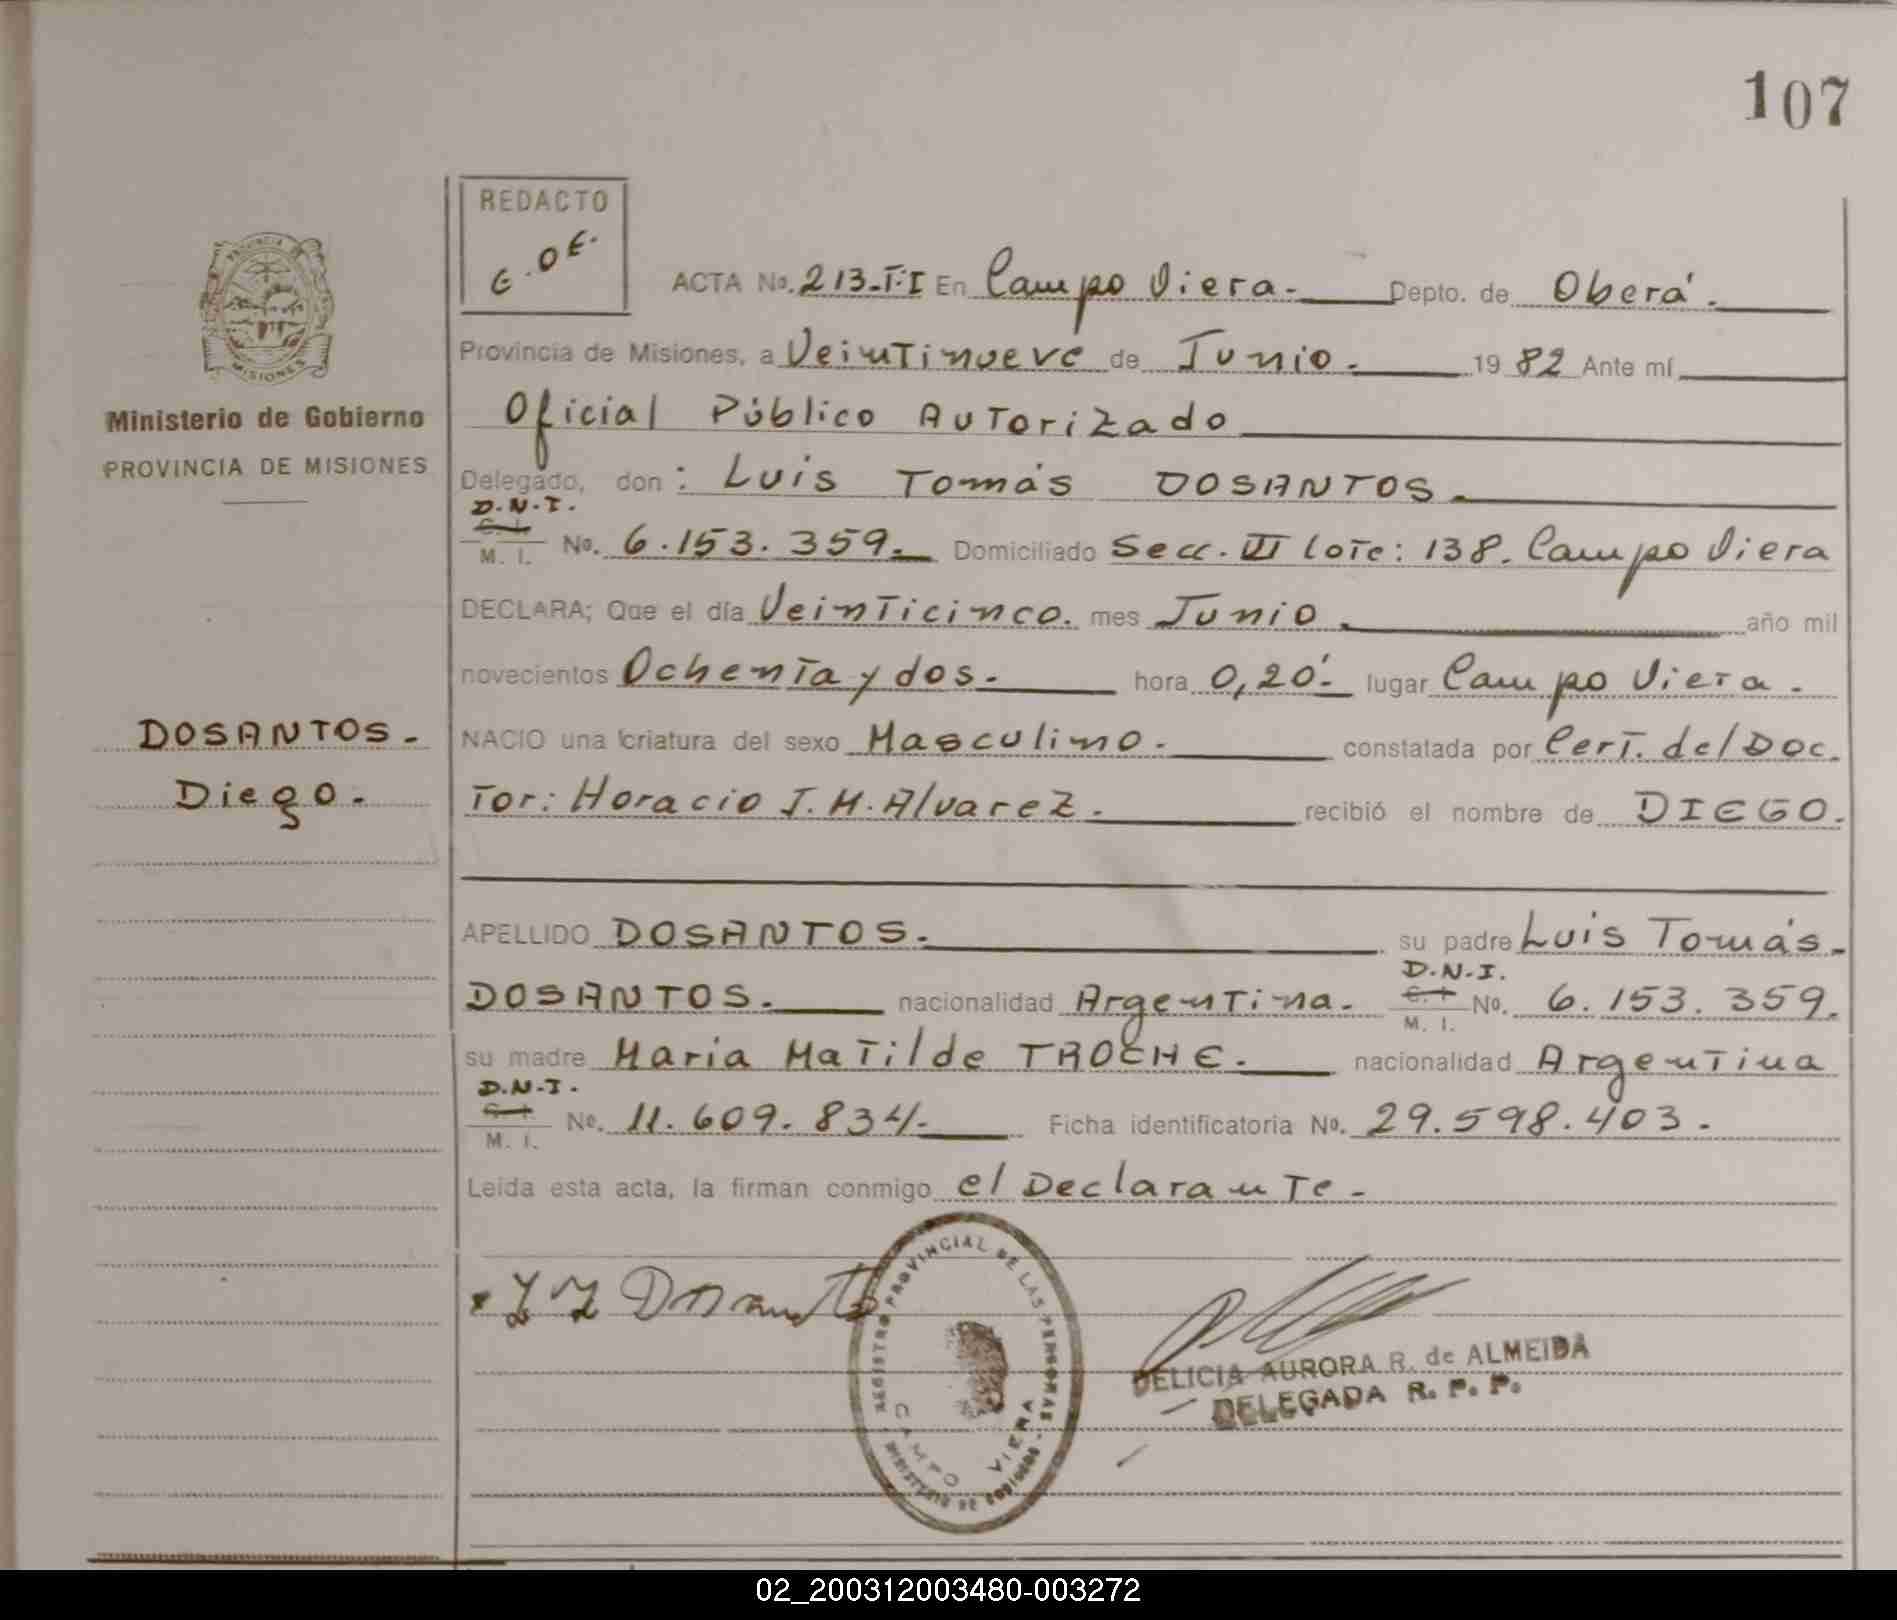 107
REDACTO
E.OE.
PROVINCIA DE
MISIONES
ACTA No. 213-T:I En Campo Viera. Depto. de Oberá.
Provincia de Misiones, a Veintinueve de Junio. 1982 Ante mí
Oficial Público Autorizado
Delegado, don: Luis Tomás DOSANTOS.
D.N.I.
C. I.
M. I. No. 6.153.359. Domiciliado Secc. III lote: 138. Campo Viera
DECLARA; Que el día Veinticinco. mes Junio. año mil
novecientos Ochenta y dos. hora 0,20'. lugar Campo Viera.
NACIO una criatura del sexo Masculino. constatada por Cert. del Doc.
tor: Horacio J. M. Alvarez. recibió el nombre de DIEGO.
APELLIDO DOSANTOS. su padre Luis Tomás
DOSANTOS. nacionalidad Argentina. D.N.I. C. I. M. I. No. 6.153.359.
su madre Maria Matilde TROCHE. nacionalidad Argentina
D.N.I.
C. I.
M. I. No. 11.609.834. Ficha identificatoria No. 29.598.403.
Leida esta acta, la firman conmigo el Declarante.
Ministerio de Gobierno
PROVINCIA DE MISIONES
DOSANTOS.
Diego.
REGISTRO PROVINCIAL DE LAS PERSONAS
CAMPO VIERA
MINISTERIO DE GOBIERNO
DELICIA AURORA R. de ALMEIDA
DELEGADA R. P. P.
02_200312003480-003272